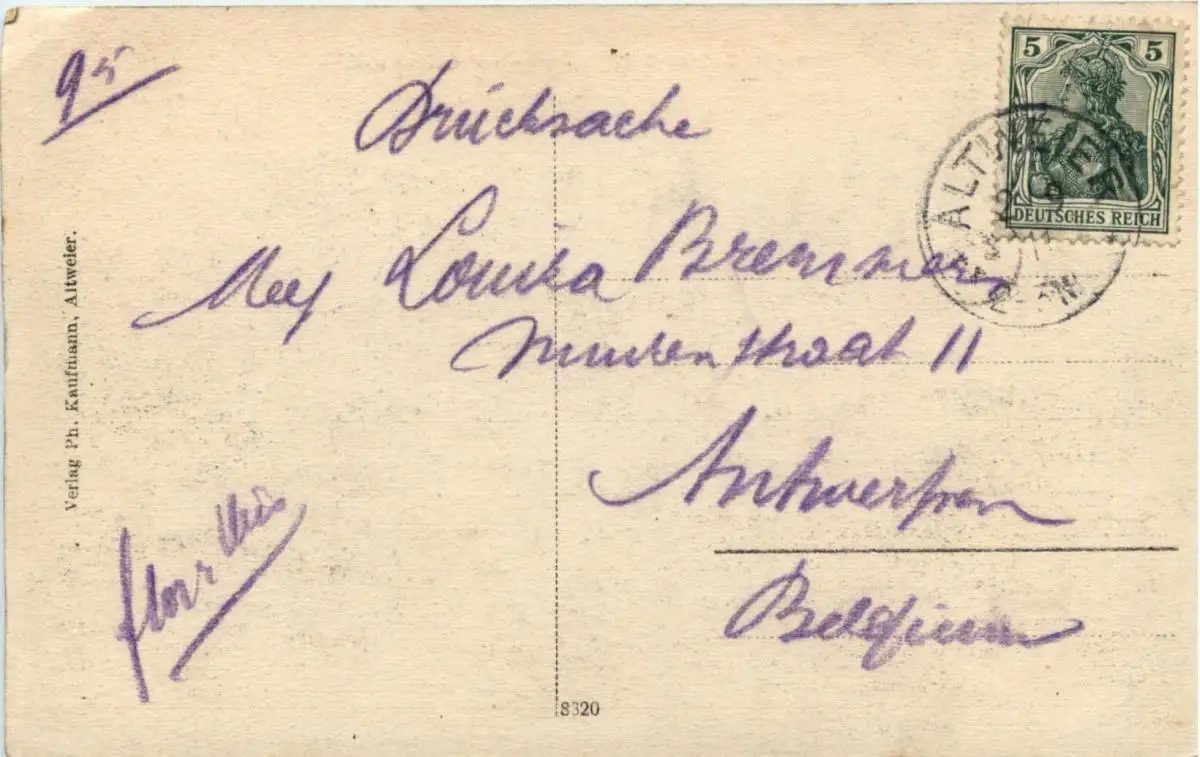 95
Drücksache
Mej Louisa Bremmer
straat 11
Antwerpen
Belgium
Verlag Ph. Kaufmann, Altweier.
8320
5 5
DEUTSCHES REICH
ALTWEIER